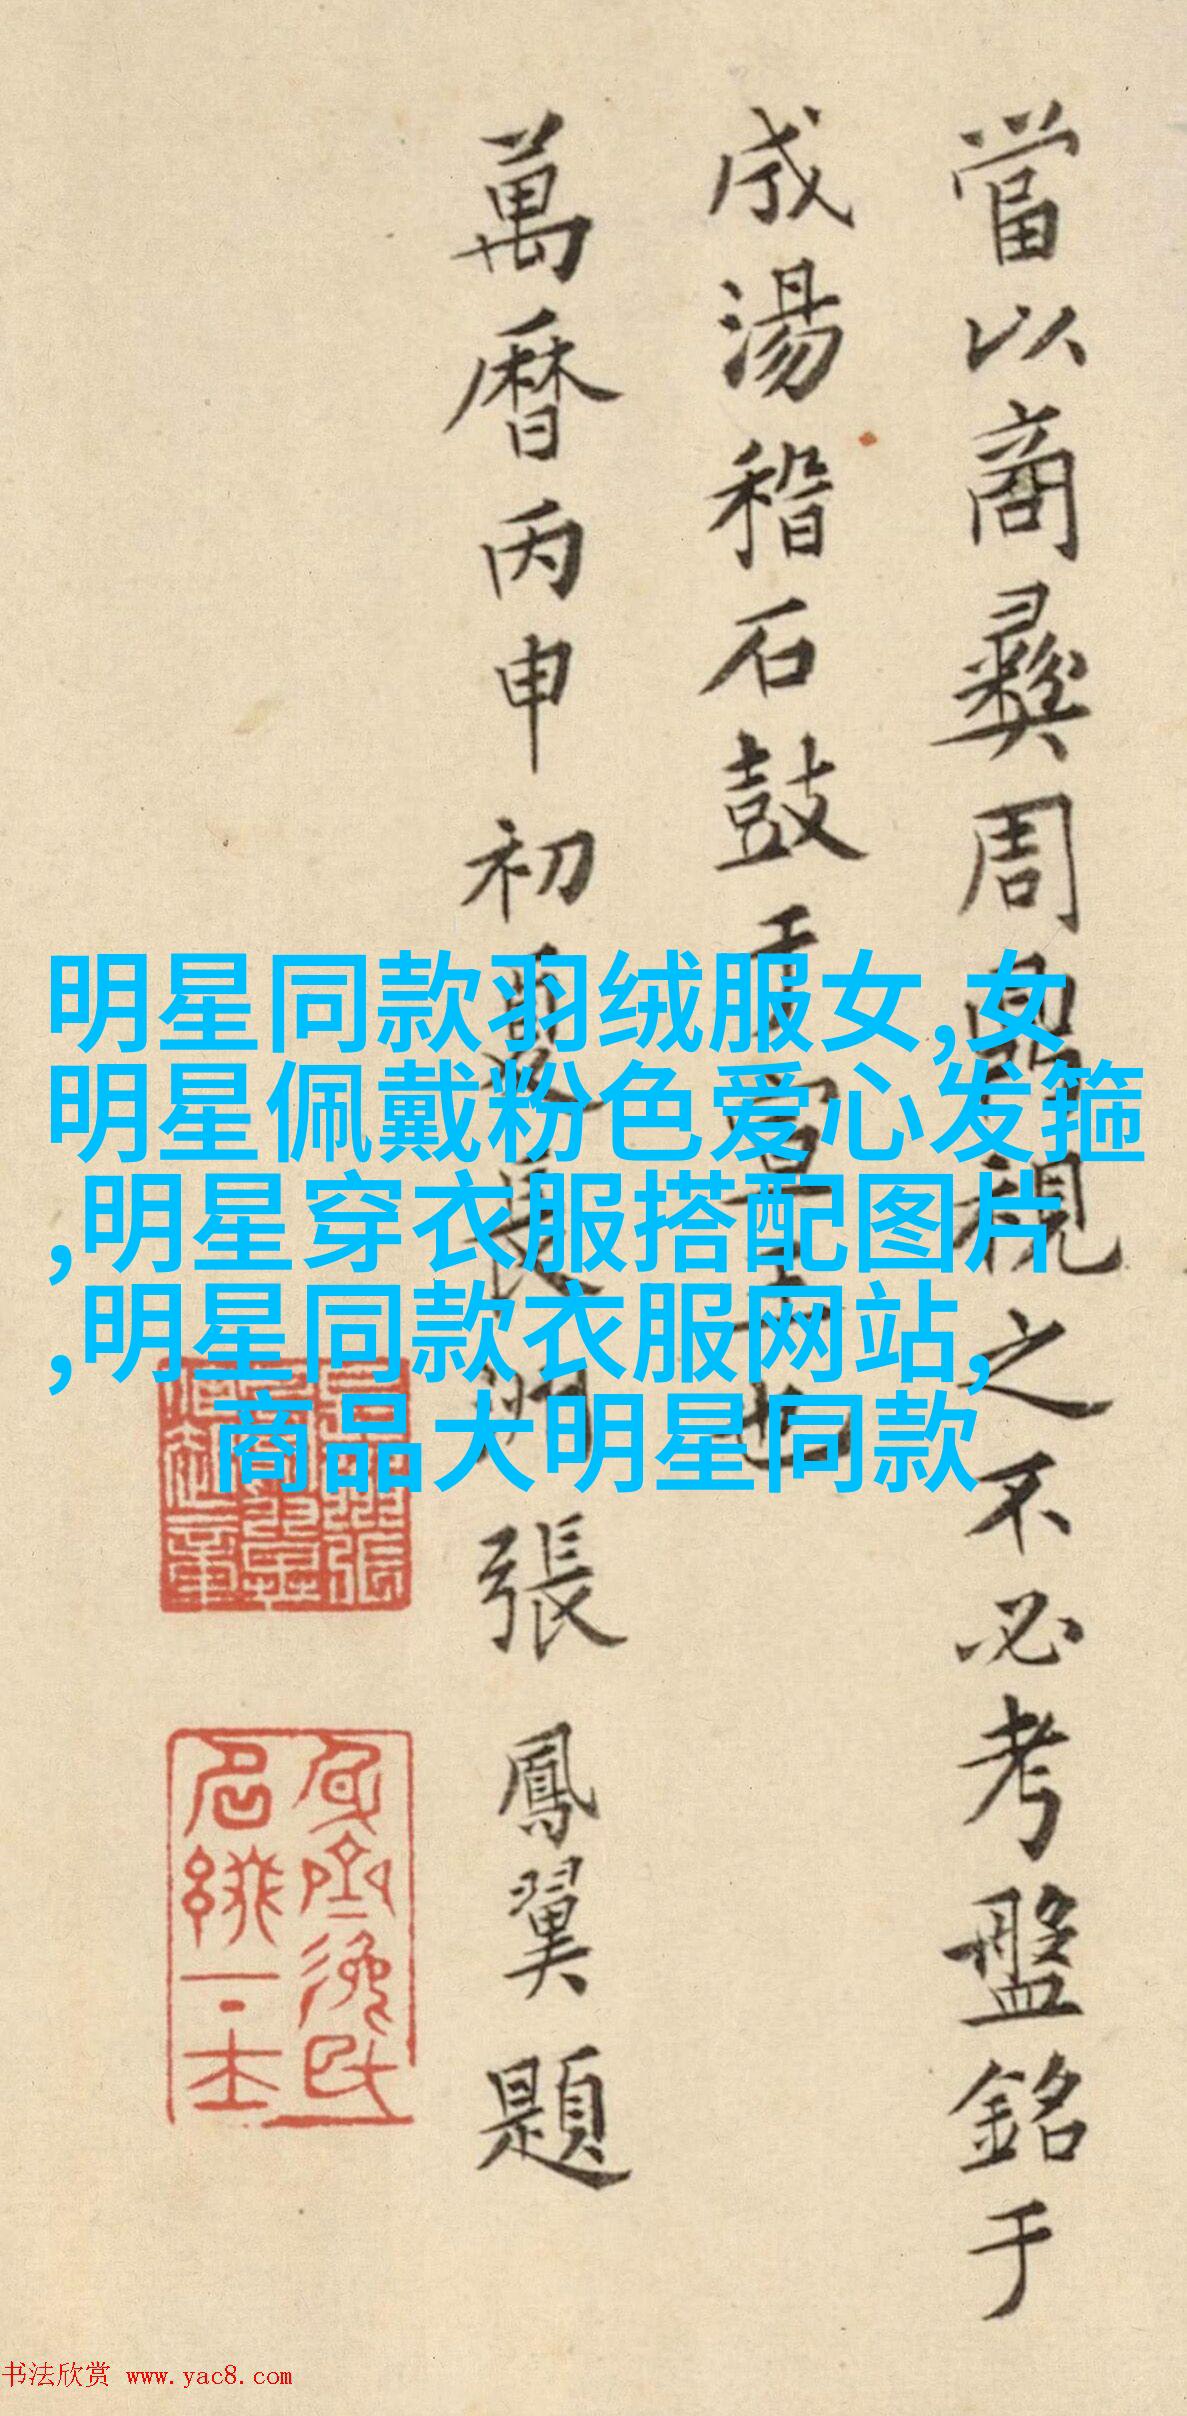 當以商彝周鼎視之不必考盤銘于
成湯稽石鼓于宣王也
萬曆丙申初夏長洲張鳳翼題
明星同款羽绒服女,女
明星佩戴粉色爱心发箍
,明星穿衣服搭配图片
,明星同款衣服网站,
商品大明星同款
书法欣赏 www.yac8.com